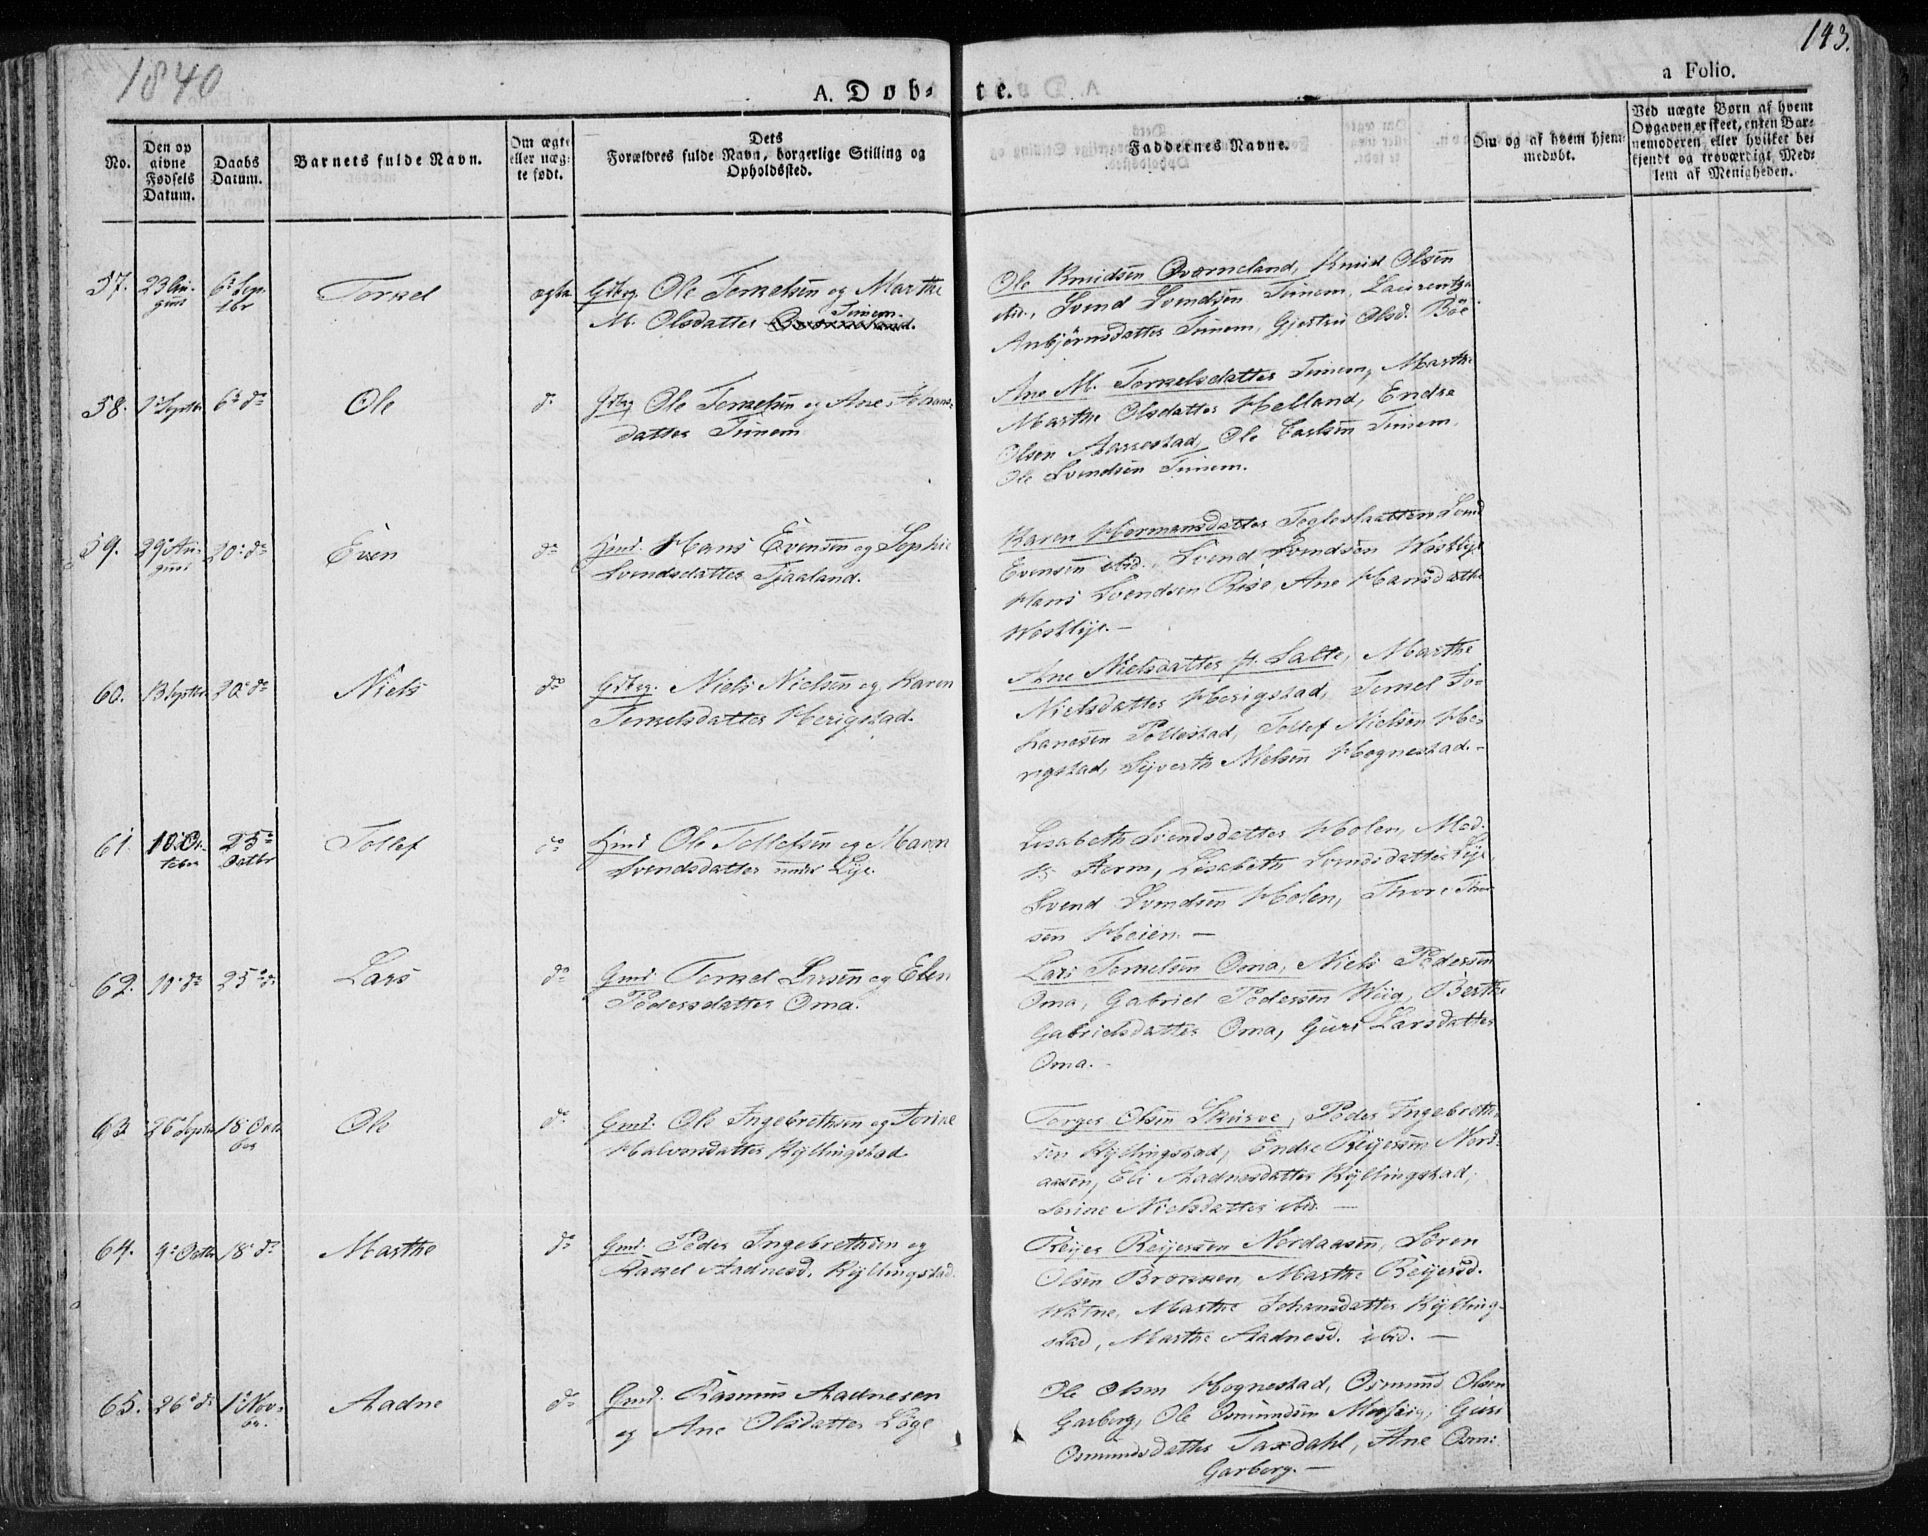 1840
143.
A. Døb-
te.
a Folio.
No.
Den op
givne
Fødsels
Datum.
Daabs
Datum.
Barnets fulde Navn.
Om ægte
eller uæg-
te født.
Dets
Forældres fulde Navn, borgerlige Stilling og
Opholdssted.
Faddernes Navne.
Om og af hvem hjem-
medøbt.
Ved uægte Børn af hvem
Opgaven er skeet, enten Bar-
nemoderen, eller hvilket be-
kjendt og troværdigt Med-
lem af Menigheden.
57. 23 Au-
gust
6te Sep-
tbr
Torkel
ægte
Gbrg. Ole Torkelsen og Marthe
M. Olsdatter Timem.
Ole Knudsen Qværneland, Knud Olsen
ibd., Svend Svendsen Timem, Laurentza
Anbjörnsdatter Timem, Gjertru Olsd. Böe
58. 1 Septbr 6te do
Ole
do
Gbrg Ole Torkelsen og Ane
datter Timem
Ane M. Torkelsdatter Timem, Marthe
Marthe Olsdatter Helland, Endre
Olsen Aarrestad, Ole Carlsen Timem,
Ole Svendsen Timem.
59. 29 Au-
gust
20. do
Even
do
Hmd. Hans Evensen og Sophie
Svendsdatter Tjaaland.
Karen Hermansdatter Tegleslaatten
Evensen ibd., Svend Svendsen Westlye
Hans Svendsen Rise, Ane Hansdatter
Westlye.—
60. 13 Septbr 20. do
Niels
do
Gbrg. Niels Nielsen og Karen
Torkelsdatter Herigstad.
Ane Nielsdatter st. Salte, Marthe
Nielsdatter Herigstad, Torkel Jo-
hanesen Pollestad, Tollef Nielsen He-
rigstad, Syverth Nielsen Hognestad.-
61. 10 Oc-
tober
25
Octbr
Tollef
do
Hmd Ole Tollefsen og Maren
Svendsdatter under Lye.
Lisabeth Svendsdatter Holen, Mad.
Storm, Lisabeth Svendsdatter Lye,
Svend Svendsen Holen, Thore Thor-
sen Heien.—
62. 10. do 25 do
Lars
do
Gmd. Torkel Larsen og Elen
Pedersdatter Oma.
Lars Torkelsen Oma, Niels Pedersen
Oma, Gabriel Pedersen Wiig, Berthe
Gabrielsdatter Oma, Guri Larsdatter
Oma.-
63 26 Septbr 18 Octo-
ber
Ole
do
Gmd. Ole Ingebrethsen og Sorine
Halvorsdatter Kyllingstad.
Torger Olsen Skurve, Peder Ingebreth-
sen Kyllingstad, Endre Reyersen Nord-
aasen, Eli Aadnesdatter Kyllingstad,
Serine Nielsdatter ibd.—
64. 9 Octbr 18 do
Marthe
do
Gmd. Peder Ingebrethsen og
Rakel Aadnesd. Kyllingstad.
Reyer Reyersen Nordaasen, Sören
Olsen Brekken, Marthe Reyersd.
Watne, Marthe Johansdatter Kylling-
stad, Marthe Aadnesd. ibd.—
65. 26 do 1 Nov-
br.
Aadne
do
Gmd. Rasmus Aadnesen
og Ane Olsdatter Løge
Ole Olsen Hognestad, Osmund Olsen
Garberg, Ole Osmundsen Mossig, Guri
Osmundsdatter Taxdahl, Ane Osm:
Garberg.—